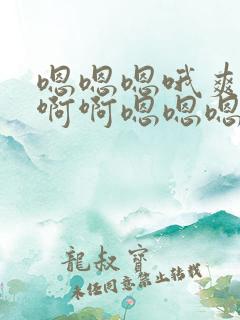 嗯嗯嗯哦爽
啊啊嗯嗯嗯
龍叔寶
未经同意禁止转载